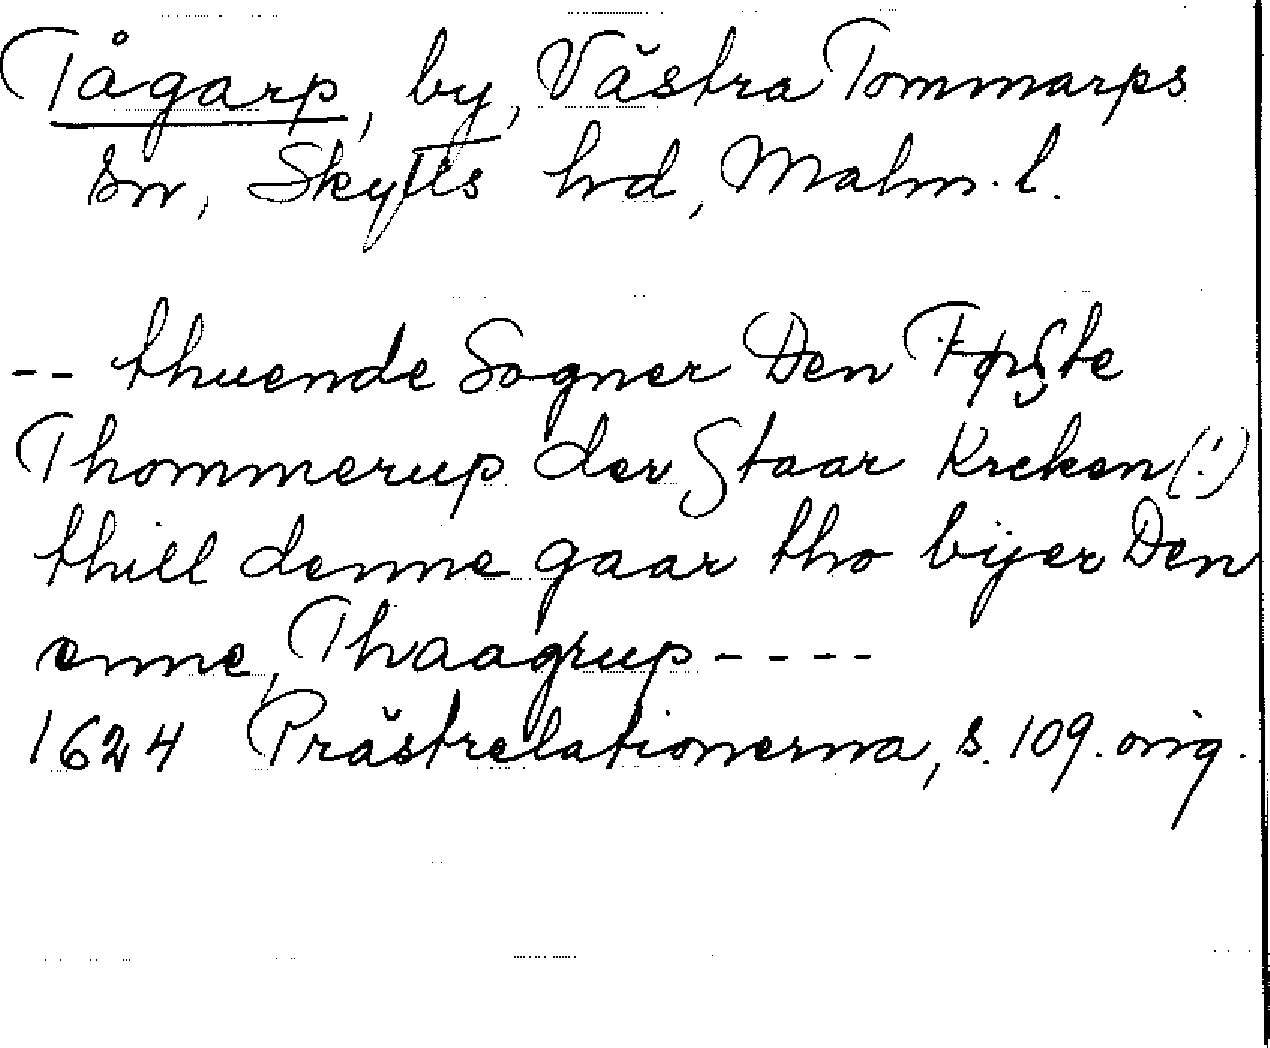 Tågarp, by, Västra Tommarps
sn, Skytts hd, Malm. l.
-- thuende Sogner Den Førſte
Thommerup der Staar Kreken (!)
thill denne gaar tho bÿer Den
enne, Thaagrup ----
1624 Prästrelationerna, s. 109. orig.